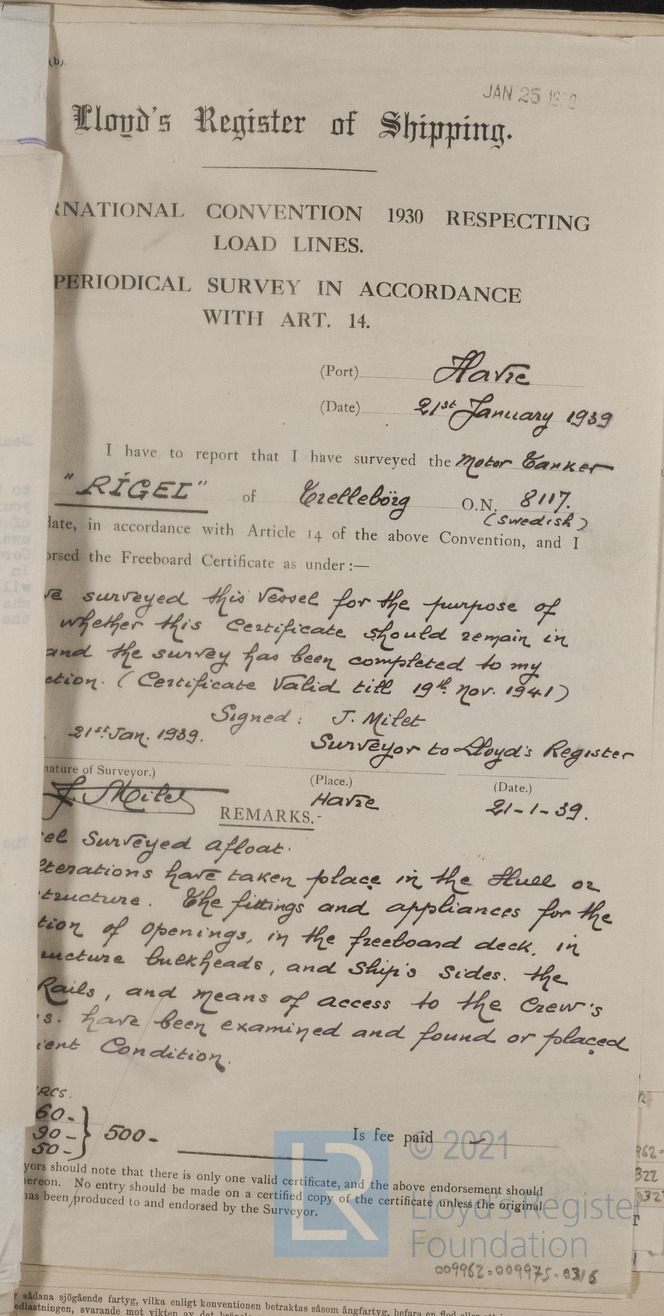 (b).
JAN 25 19
Lloyd's Register of Shipping.
RNATIONAL CONVENTION 1930 RESPECTING
LOAD LINES.
PERIODICAL SURVEY IN ACCORDANCE
WITH ART. 14.
(Port) Havre
(Date) 21st January 1939
I have to report that I have surveyed the Motor Tanker
"RIGEL" of Trelleborg O.N. 8117.
(Swedish)
date, in accordance with Article 14 of the above Convention, and I
orsed the Freeboard Certificate as under :—
ve surveyed this vessel for the purpose of
whether this Certificate should remain in
and the survey has been completed to my
ction. (Certificate Valid till 19th Nov. 1941)
Signed: J. Milet
21st Jan. 1939.
Surveyor to Lloyd's Register
nature of Surveyor.) (Place.) (Date.)
J. Milet Havre 21-1-39.
REMARKS.-
el Surveyed afloat.
lterations have taken place in the Hull or
tructure. The fittings and appliances for the
tion of openings, in the freeboard deck, in
ucture bulkheads, and Ship's Sides. the
Rails, and means of access to the Crew's
s. have been examined and found or placed
ient Condition.
RCS.
60-
90- } 500-
50-
Is fee paid ✓
yors should note that there is only one valid certificate, and the above endorsement should
hereon. No entry should be made on a certified copy of the certificate unless the original
has been produced to and endorsed by the Surveyor.
© 2021
LR
Lloyd's Register
Foundation
009962-009975-0316
r sådana sjögående fartyg, vilka enligt konventionen betraktas såsom ångfartyg, befara en flod eller
edlastningen, svarande mot vikten av det
962-
322
032